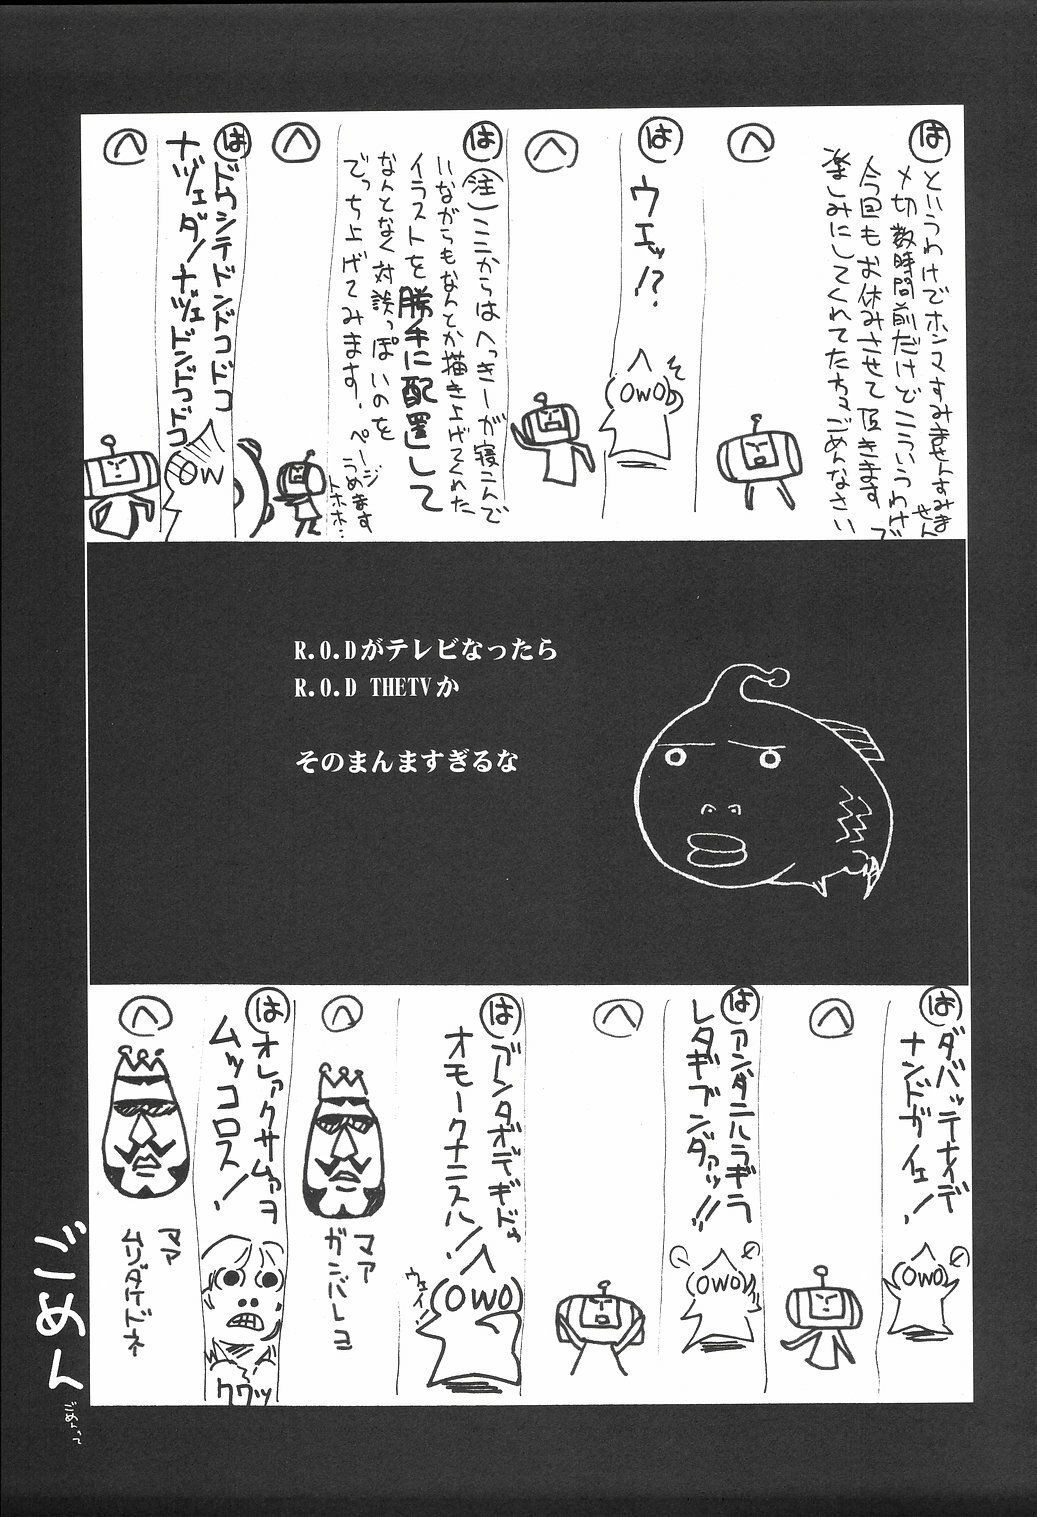 は
というわけでホンマすみませんすみません
〆切数時間前だけどこういうわけで
今回もお休みさせて頂きます
楽しみにしてくれてた方々ごめんなさい
へ
は
ウエッ!?
(OwO)
へ
は
(注)ここからはへっきーが寝こんで
いながらもなんとか描き上げてくれた
イラストを勝手に配置して
なんとなく対談っぽいのを
でっち上げてみます。
ページ
うめます
トホホ…
へ
は
ドウシテドンドコドコ
ナヅェダ!ナヅェドンドコドコ
OW
へ
R.O.Dがテレビなったら
R.O.D THETVか
そのまんますぎるな
は
ダバッテナイデ
ナンドガイェ!
(OwO)
へ
は
アンダニハラギラ
レタギブンダァッ!!
(OwO)
へ
は
アンタボデギドゥ
オモークナニスハ!
ウェイ!!
(OwO)
へ
マア
ガンバレヨ
は
オレァクサムァヲ
ムッコロス!
クワッ
へ
マア
ムリダケドネ
ごめん
ごめんって